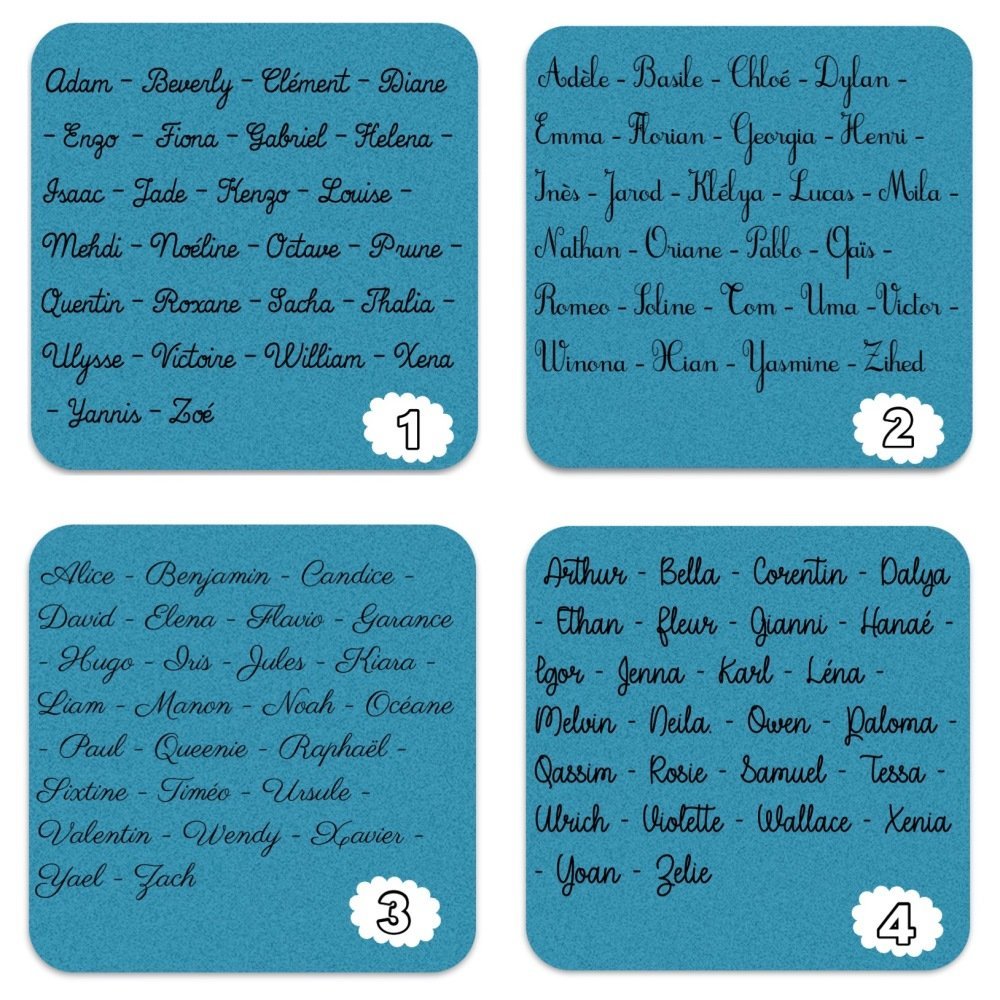 Adam - Beverly - Clément - Diane
- Enzo - Fiona - Gabriel - Helena
Isaac - Jade - Kenzo - Louise -
Mehdi - Noéline - Octave - Prune -
Quentin - Roxane - Sacha - Thalia -
Ulysse - Victoire - William - Xena
- Yannis - Zoé
1
Adèle - Basile - Chloé - Dylan -
Emma - Florian - Georgia - Henri -
Inès - Jarod - Klélya - Lucas - Mila -
Nathan - Oriane - Pablo - Qaïs -
Romeo - Soline - Tom - Uma - Victor -
Winona - Xian - Yasmine - Zihed
2
Alice - Benjamin - Candice -
David - Elena - Flavio - Garance
- Hugo - Iris - Jules - Kiara -
Liam - Manon - Noah - Océane
- Paul - Queenie - Raphaël -
Sixtine - Timéo - Ursule -
Valentin - Wendy - Xavier -
Yael - Zach
3
Arthur - Bella - Corentin - Dalya
- Ethan - Fleur - Gianni - Hanaé -
Igor - Jenna - Karl - Léna -
Melvin - Neila. - Owen - Paloma -
Qassim - Rosie - Samuel - Tessa -
Ulrich - Violette - Wallace - Xenia
- Yoan - Zelie
4